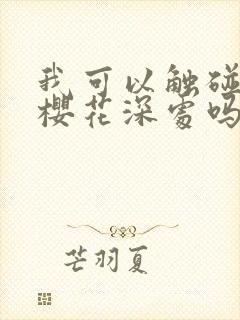 我可以触碰
樱花深处吗
芒羽夏